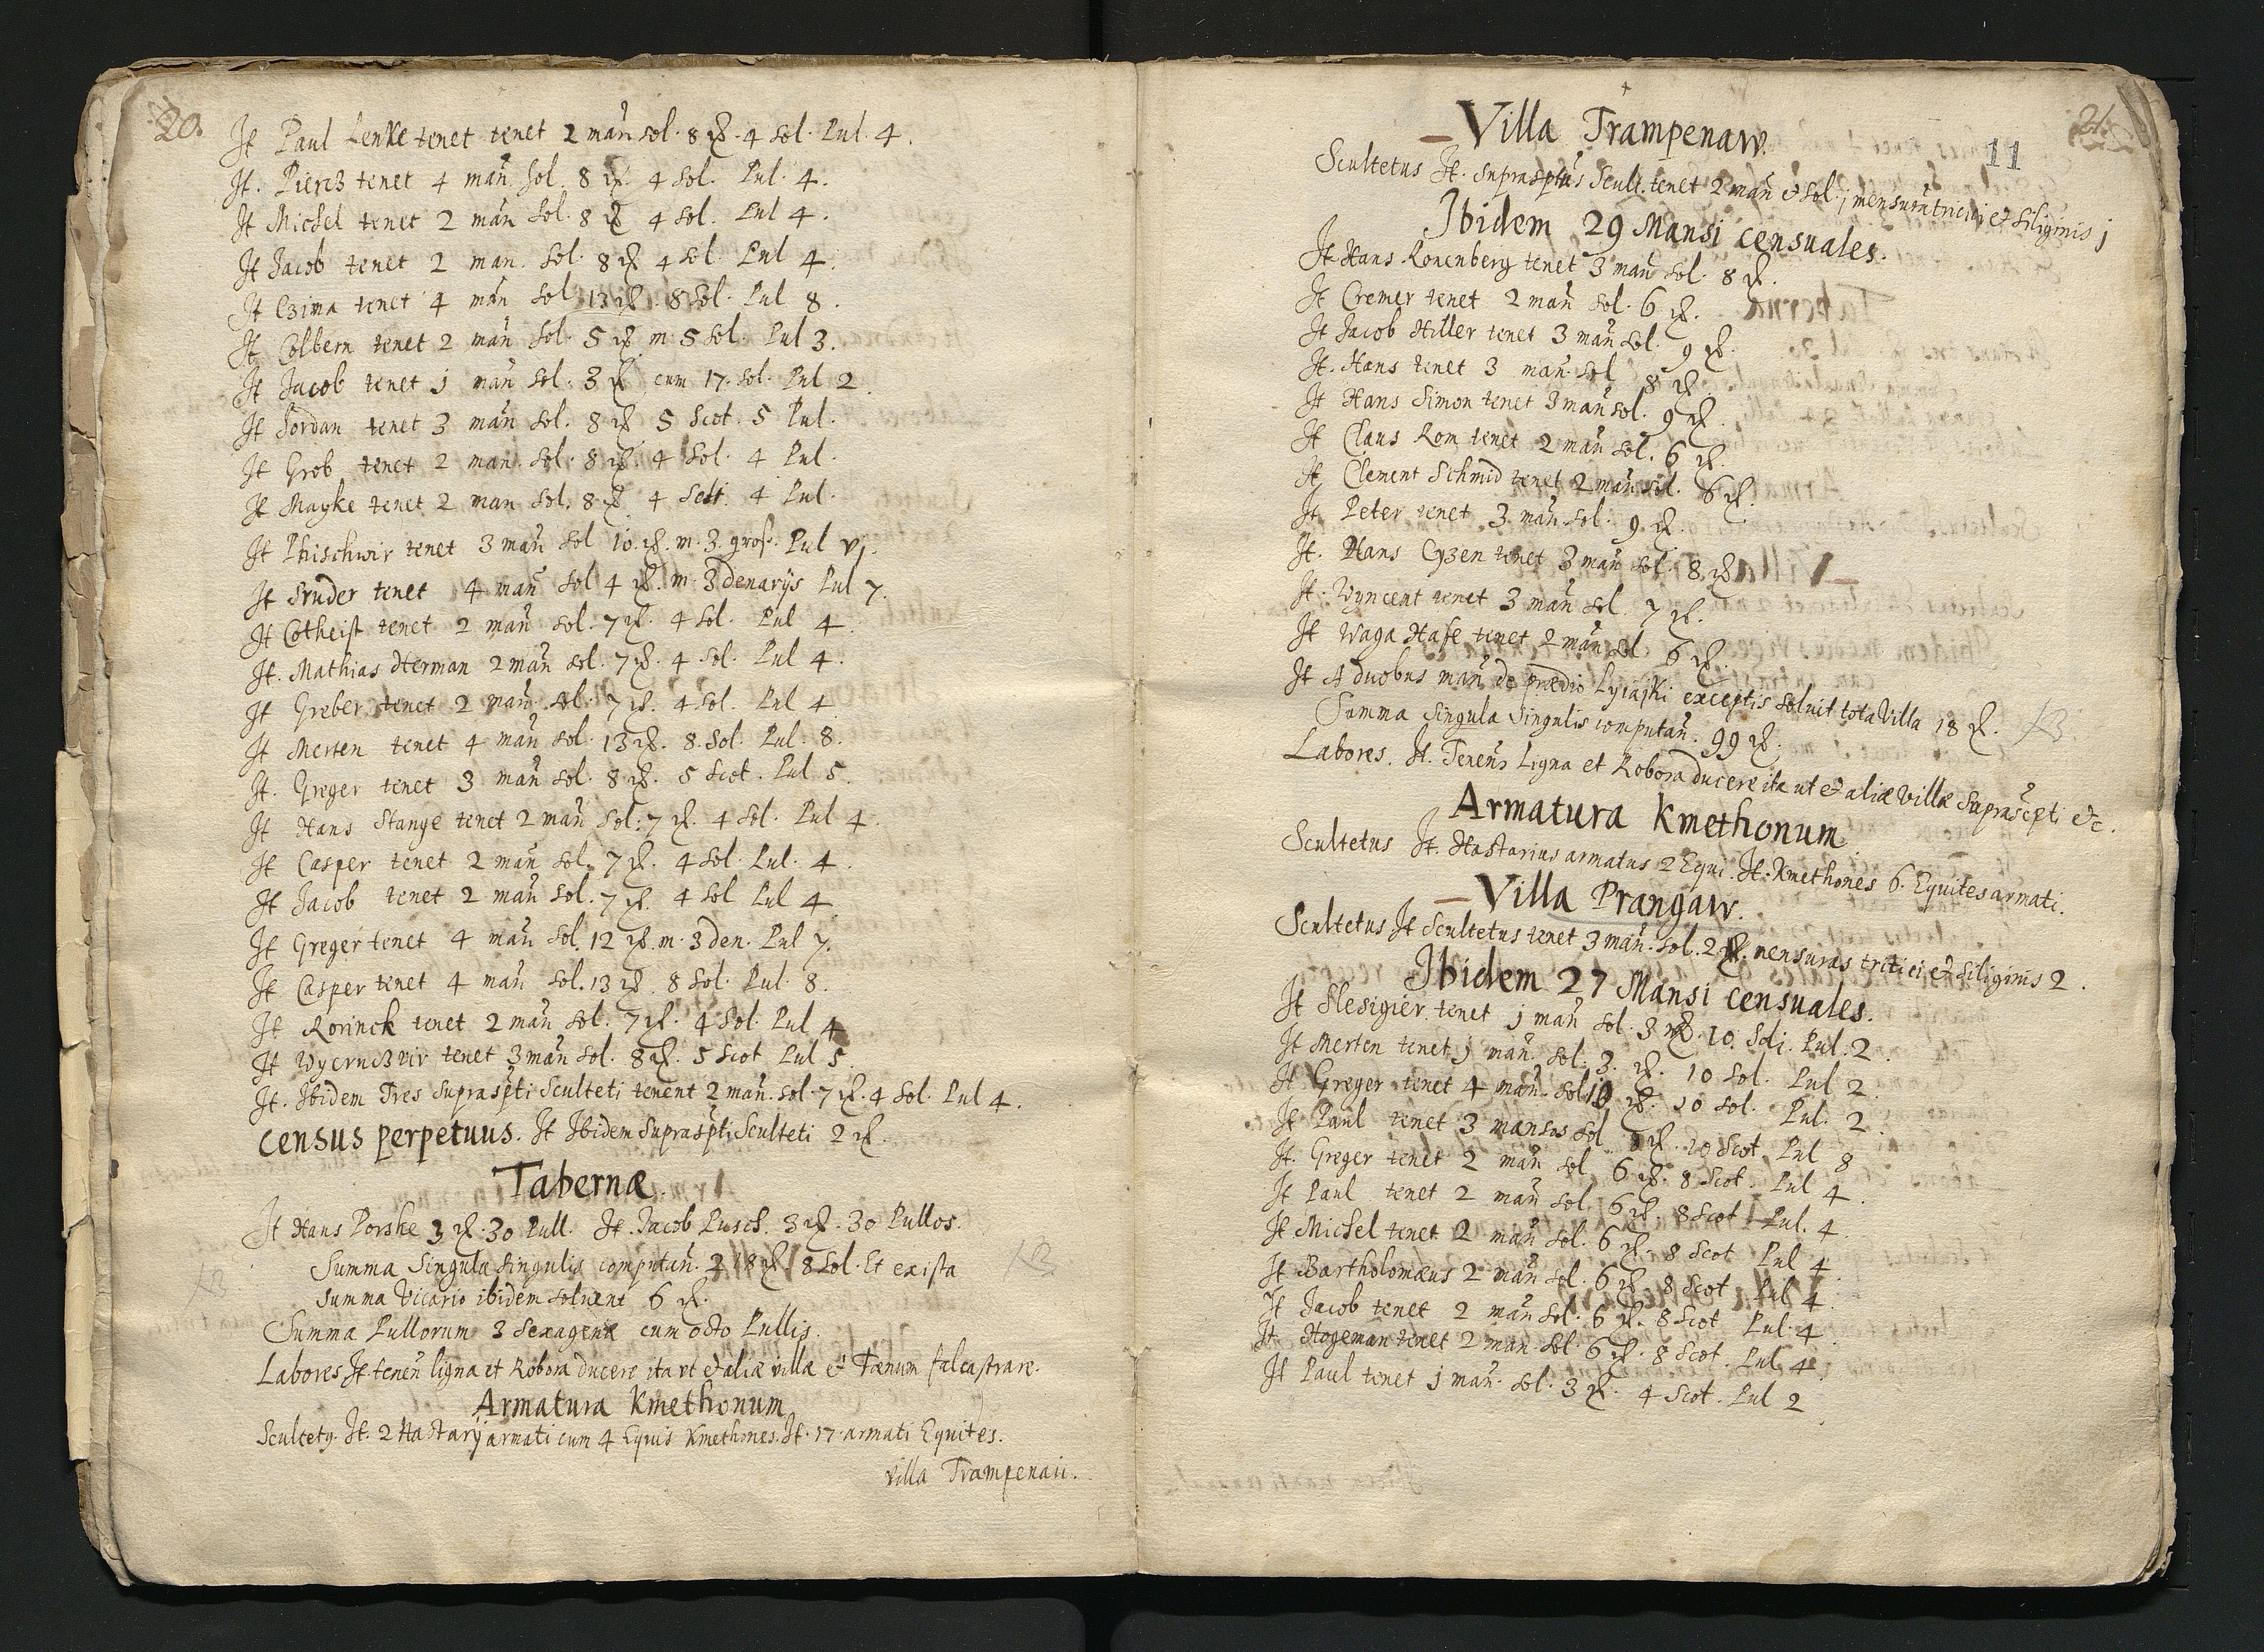 20.
It Paul Lenke tenet tenet 2 mañ sol. 8 ꝶ. 4 sol. Pul. 4.
It. Pierc3 tenet 4 mañ. sol. 8 ꝶ. 4 sol. Pul. 4.
It Michel tenet 2 mañ sol. 8 ꝶ 4 sol. Pul 4.
It Jacob tenet 2 man. sol. 8 ꝶ 4 sol. Pul 4.
It C3ima tenet 4 mañ sol 13 ꝶ 8 sol. Pul 8.
It Colbern tenet 2 mañ sol. 5 ꝶ m 5 sol. Pul 3.
It Jacob tenet j mañ sol. 3 ꝶ cum 17. sol. Pul 2.
It Jordan tenet 3 mañ sol. 8 ꝶ 5 Scot. 5 Pul.
It Grob tenet 2 man. sol. 8 ꝶ. 4 sol. 4 Pul.
It Mayke tenet 2 man sol. 8 ꝶ. 4 4 Pul.
It Phischwir tenet 3 mañ sol 10. ꝶ. m. 3 groß. Pul vj.
It Sruder tenet 4 mañ sol 4 ꝶ. m. 3 denarijs Pul 7.
It Cotheist tenet 2 mañ sol. 7 ꝶ. 4 sol. Pul 4.
It. Mathias Herman 2 mañ sol. 7 ꝶ. 4 sol. Pul 4.
It Greber tenet 2 mañ sol. 7 ꝶ. 4 sol. Pul 4
It Merten tenet 4 mañ sol. 13 ꝶ. 8. sol. Pul. 8.
It. Greger tenet 3 mañ sol. 8 ꝶ. 5 Scot. Pul 5.
It Hans Stange tenet 2 mañ sol. 7 ꝶ. 4 sol. Pul 4.
It Casper tenet 2 mañ sol. 7 ꝶ. 4 sol. Pul. 4.
It Jacob tenet 2 mañ sol. 7 ꝶ. 4 sol Pul 4
It Greger tenet 4 mañ sol. 12 ꝶ. m. 3 den. Pul 7.
It Casper tenet 4 mañ sol. 13 ꝶ. 8 sol. Pul. 8.
It Rorinck tenet 2 mañ sol. 7 ꝶ. 4 sol. Pul 4
It Wyernc3vir tenet 3 mañ sol. 8 ꝶ. 5 Scot Pul 5.
It. Ibidem Tres suprasp̃ti Sculteti tenent 2 mañ. sol. 7 ꝶ. 4 sol. Pul 4.
Census perpetuus. It Ibidem Suprasp̃ti Sculteti 2 ꝶ.
Tabernæ.
It Hans Porske 3 ꝶ. 30 Pull. It. Jacob Pusch. 3 ꝶ. 30 Pullos.
Summa Singula Singulis computañ. 2 18 ꝶ 8 sol. Et ex ista
summa Vicario ibidem solvent 6 ꝶ.
Summa Pullorum 3 Sexagenæ cum octo Pullis.
Labores It. teneñ ligna et Robora ducere ita vt et aliæ villæ et Fœnum falcastrare.
Armatura Kmethonum
Scultety. It. 2 Hastarij armati cum 4 Equis Kmethones. It. 17. armati Equites.
Villa Trampenaw.
21.
11
Villa Trampenaw.
Scultetus It. suprasptus Scult. tenet 2 mañ et sol. j mensuram tritici et Siliginis j
Ibidem 29 Mansi censuales.
It Hans Ronenberg tenet 3 mañ sol. 8 ꝶ.
It Cremer tenet 2 mañ sol. 6 ꝶ.
It Jacob Hiller tenet 3 mañ sol. 9 ꝶ.
It. Hans tenet 3 mañ. sol 8 ꝶ.
It Hans Simon tenet 3 mañ sol. 9 ꝶ.
It Claus Rom tenet 2 mañ sol. 6 ꝶ.
It Clement Schmid tenet 2 mañ sol. 6 ꝶ.
It Peter tenet 3 mañ. sol. 9 ꝶ.
It. Hans Cyzen tenet 3 mañ sol. 8 ꝶ
It. Wyncent tenet 3 mañ sol. 7 ꝶ.
It Waga Hase tenet 2 mañ sol 6 ꝶ.
It A duobus mañ de prædio exceptis solvit tota Villa 18 ꝶ.
Summa Singula Singulis computañ. 99 ꝶ.
Labores. It. Teneñt Ligna et Robora ducere ita ut et aliæ villæ Suprascr̃pti etc.
Armatura Kmethonum.
Scultetus It. Hastarius armatus 2 Equi. It. Kmethones 6. Equites armati.
Villa Prangaw.
Scultetus It Scultetus tenet 3 mañ. sol. 2 mensuras tritici et Siliginis 2.
Ibidem 27 Mansi Censuales.
It Slesigier tenet j mañ sol. 3 ꝶ. 10. Pul. 2.
It Merten tenet j mañ. sol. 3. ꝶ. 10 sol. Pul 2.
It Greger tenet 4 mañ. sol 10 ꝶ. 10 sol. Pul. 2.
It Paul tenet 3 mansos sol ꝶ. 10 Scot Pul 8
It. Greger tenet 2 mañ sol 6 ꝶ. 8 Scot. Pul 4.
It Paul tenet 2 mañ sol. 6 ꝶ. 8 Scot Pul. 4.
It Michel tenet 2 mañ sol. 6 ꝶ. 8 Scot Pul 4
It Bartholomæus 2 mañ sol. 6 ꝶ 8 Scot Pul 4.
It Jacob tenet 2 mañ sol. 6 ꝶ. 8 Scot Pul. 4.
It Hogeman tenet 2 man. sol. 6 ꝶ. 8 Scot. Pul 4
It Paul tenet j mañ. sol. 3 ꝶ. 4 Scot. Pul 2